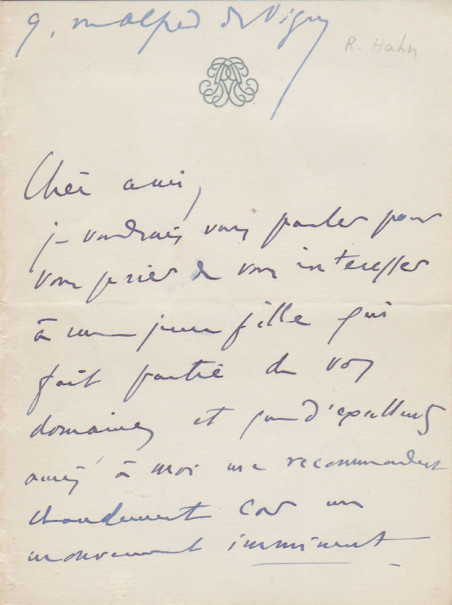 9, r. Alfred de Vigny
R. Hahn
Cher ami,
je voudrais vous parler pour
vous prier de vous intéresser
à une jeune fille qui
fait partie de vos
domaines et que d'excellents
amis à moi me recommandent
chaudement car un
mouvement imminent